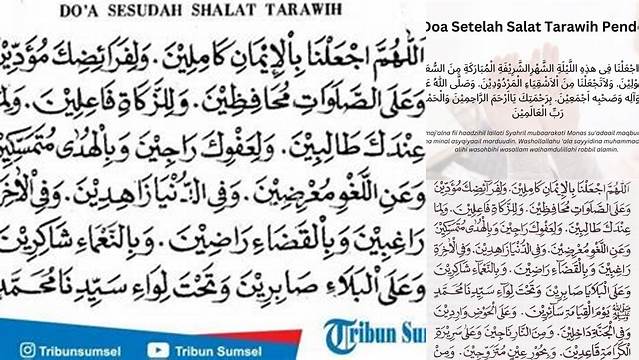 DO'A SESUDAH SHALAT TARAWIH
اَللّٰهُمَّ اجْعَلْنَا بِالْإِيْمَانِ كَامِلِيْنَ. وَلِفَرَائِضِكَ مُؤَدِّيْنَ
وَعَلَى الصَّلَوَاتِ مُحَافِظِيْنَ. وَلِلزَّكَاةِ فَاعِلِيْنَ. وَلِمَا
عِنْدَكَ طَالِبِيْنَ. وَلِعَفْوِكَ رَاجِيْنَ وَبِالْهُدَى مُتَمَسِّكِيْنَ
وَعَنِ اللَّغْوِ مُعْرِضِيْنَ. وَفِى الدُّنْيَا زَاهِدِيْنَ. وَفِى الْاٰخِرَ
رَاغِبِيْنَ وَبِالْقَضَاءِ رَاضِيْنَ. وَبِالنَّعْمَاءِ شَاكِرِيْنَ
وَعَلَى الْبَلَاءِ صَابِرِيْنَ وَتَحْتَ لِوَاءِ سَيِّدِنَا مُحَمَّدٍ
Tribunsumsel
Tribun Sumsel
Tribun Su
Doa Setelah Salat Tarawih Pend
اجْعَلْنَا فِى هٰذِهِ اللَّيْلَةِ الشَّهْرِ الشَّرِيْفَةِ الْمُبَارَكَةِ مِنَ السُّعَ
بُوْلِيْنَ. وَلَاتَجْعَلْنَا مِنَ الْاَشْقِيَاءِ الْمَرْدُوْدِيْنَ. وَصَلَّى اللهُ
وَآلِهِ وَصَحْبِهِ أَجْمَعِيْنَ. بِرَحْمَتِكَ يَاأَرْحَمَ الرَّاحِمِيْنَ وَالْحَمْ
رَبِّ الْعَالَمِيْنَ
maj'alna fii haadzihil lailati Syahril mubaarakati Monas su'adaail maqbu
na minal asyqiyaail marduudin. Washollallahu 'ala sayyidina muhammad
alihi wasohbihi wasallam walhamdulillahi robbil alamin.
اَللّٰهُمَّ اجْعَلْنَا بِالْإِيْمَانِ كَامِلِيْنَ. وَلِفَرَائِضِكَ مُؤَدِّيْنَ
وَعَلَى الصَّلَوَاتِ مُحَافِظِيْنَ. وَلِلزَّكَاةِ فَاعِلِيْنَ. وَلِمَا
عِنْدَكَ طَالِبِيْنَ. وَلِعَفْوِكَ رَاجِيْنَ وَبِالْهُدَى مُتَمَسِّكِيْنَ
وَعَنِ اللَّغْوِ مُعْرِضِيْنَ. وَفِى الدُّنْيَا زَاهِدِيْنَ. وَفِى الْاٰخِرَةِ
رَاغِبِيْنَ وَبِالْقَضَاءِ رَاضِيْنَ. وَبِالنَّعْمَاءِ شَاكِرِيْنَ
وَعَلَى الْبَلَايَا صَابِرِيْنَ وَتَحْتَ لِوَاءِ سَيِّدِنَا مُحَمَّدٍ
ﷺ يَوْمَ الْقِيَامَةِ سَائِرِيْنَ. وَإِلَى الْحَوْضِ وَارِدِيْنَ.
وَفِى الْجَنَّةِ دَاخِلِيْنَ. وَمِنَ النَّارِ نَاجِيْنَ وَعَلَى سَرِيْرَةِ
الْكَرَامَةِ قَاعِدِيْنَ. وَبِحُوْرٍ عِيْنٍ مُتَزَوِّجِيْنَ. وَمِنْ